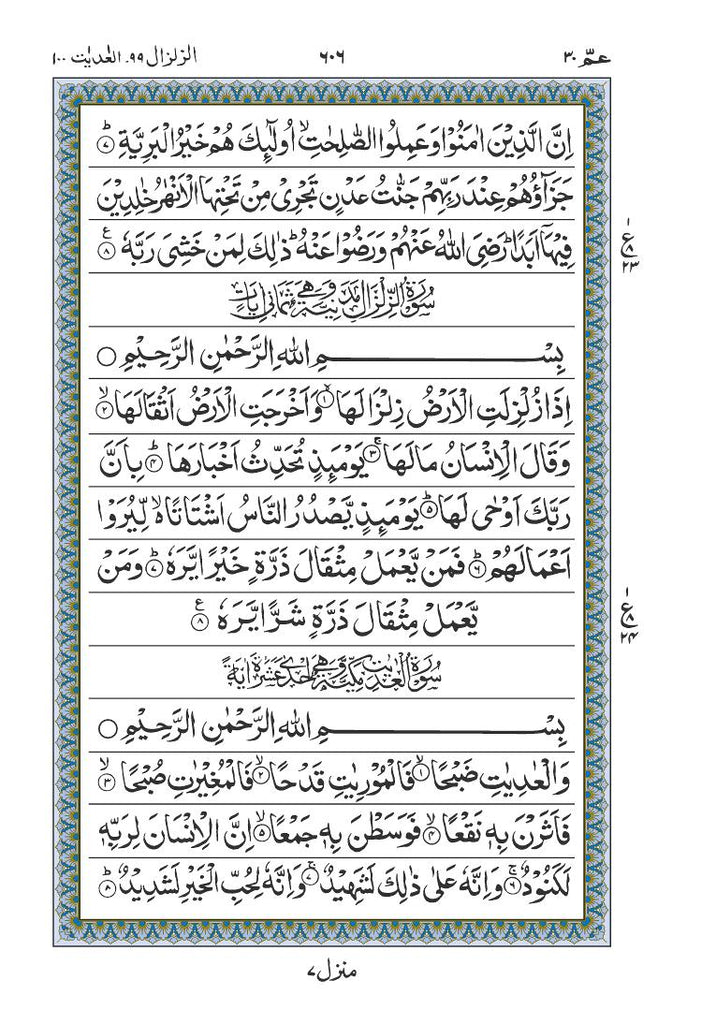 عمّ ۳۰ ۶۰۶ الزلزال ۹۹۔ العٰدیٰت ۱۰۰
اِنَّ الَّذِيْنَ اٰمَنُوْا وَعَمِلُوا الصّٰلِحٰتِ ۙ اُولٰٓئِكَ هُمْ خَيْرُ الْبَرِيَّةِ ؕ‏ ﴿۷﴾
جَزَآؤُهُمْ عِنْدَ رَبِّهِمْ جَنّٰتُ عَدْنٍ تَجْرِىْ مِنْ تَحْتِهَا الْاَنْهٰرُ خٰلِدِيْنَ
فِيْهَاۤ اَبَدًا ؕ رَضِىَ اللّٰهُ عَنْهُمْ وَرَضُوْا عَنْهُ ؕ ذٰلِكَ لِمَنْ خَشِىَ رَبَّهٗ ﴿۸﴾ ع
۱
ع
۸
۲۳
سُوْرَةُ الزِّلْزَالِ مَدَنِيَّةٌ وَّهِىَ ثَمَانِىْ اٰيَاتٍ
بِسْمِ اللّٰهِ الرَّحْمٰنِ الرَّحِيْمِ ○
اِذَا زُلْزِلَتِ الْاَرْضُ زِلْزَالَهَا ۙ ﴿۱﴾ وَاَخْرَجَتِ الْاَرْضُ اَثْقَالَهَا ۙ ﴿۲﴾
وَقَالَ الْاِنْسَانُ مَا لَهَا ۚ ﴿۳﴾ يَوْمَئِذٍ تُحَدِّثُ اَخْبَارَهَا ؕ ﴿۴﴾ بِاَنَّ
رَبَّكَ اَوْحٰى لَهَا ؕ ﴿۵﴾ يَوْمَئِذٍ يَّصْدُرُ النَّاسُ اَشْتَاتًا ۙ۬ لِّيُرَوْا
اَعْمَالَهُمْ ؕ ﴿۶﴾ فَمَنْ يَّعْمَلْ مِثْقَالَ ذَرَّةٍ خَيْرًا يَّرَهٗ ؕ ﴿۷﴾ وَمَنْ
يَّعْمَلْ مِثْقَالَ ذَرَّةٍ شَرًّا يَّرَهٗ ﴿۸﴾ ع
۱
ع
۸
۲۴
سُوْرَةُ الْعٰدِيٰتِ مَكِّيَّةٌ وَّهِىَ اِحْدٰى عَشْرَةَ اٰيَةً
بِسْمِ اللّٰهِ الرَّحْمٰنِ الرَّحِيْمِ ○
وَالْعٰدِيٰتِ ضَبْحًا ۙ ﴿۱﴾ فَالْمُوْرِيٰتِ قَدْحًا ۙ ﴿۲﴾ فَالْمُغِيْرٰتِ صُبْحًا ۙ ﴿۳﴾
فَاَثَرْنَ بِهٖ نَقْعًا ۙ ﴿۴﴾ فَوَسَطْنَ بِهٖ جَمْعًا ۙ ﴿۵﴾ اِنَّ الْاِنْسَانَ لِرَبِّهٖ
لَكَنُوْدٌ ۚ ﴿۶﴾ وَاِنَّهٗ عَلٰى ذٰلِكَ لَشَهِيْدٌ ۚ ﴿۷﴾ وَاِنَّهٗ لِحُبِّ الْخَيْرِ لَشَدِيْدٌ ؕ ﴿۸﴾
منزل ۷